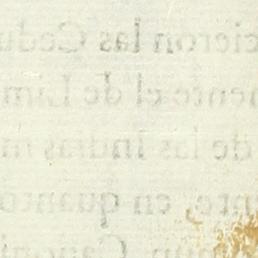 cieron las Cedu
mente el de Lim
de las Indias m
ente, en quanto